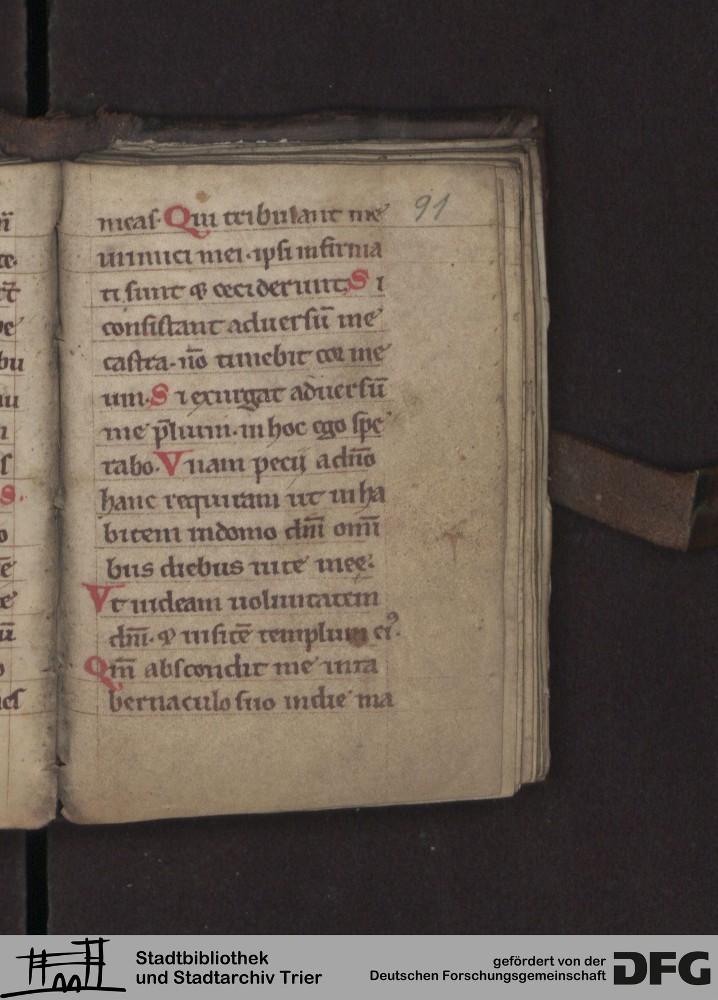 91
meas. Qui tribulant me
inimici mei. ipsi infirma
ti sunt & ceciderunt. Si
consistant adversū me
castra. nō timebit cor me
um. Si exurgat adversū
me p̄lium. in hoc ego spe
rabo. Vnam pecij a dn̄o
hanc requiram ut inha
bitem in domo dn̄i om̄i
bus diebus uite mee.
Vt uideam uoluntatem
dn̄i. & uisitē templum ei9.
Qm̄ abscondit me in ta
bernaculo suo in die ma
Stadtbibliothek
und Stadtarchiv Trier
gefördert von der
Deutschen Forschungsgemeinschaft
DFG